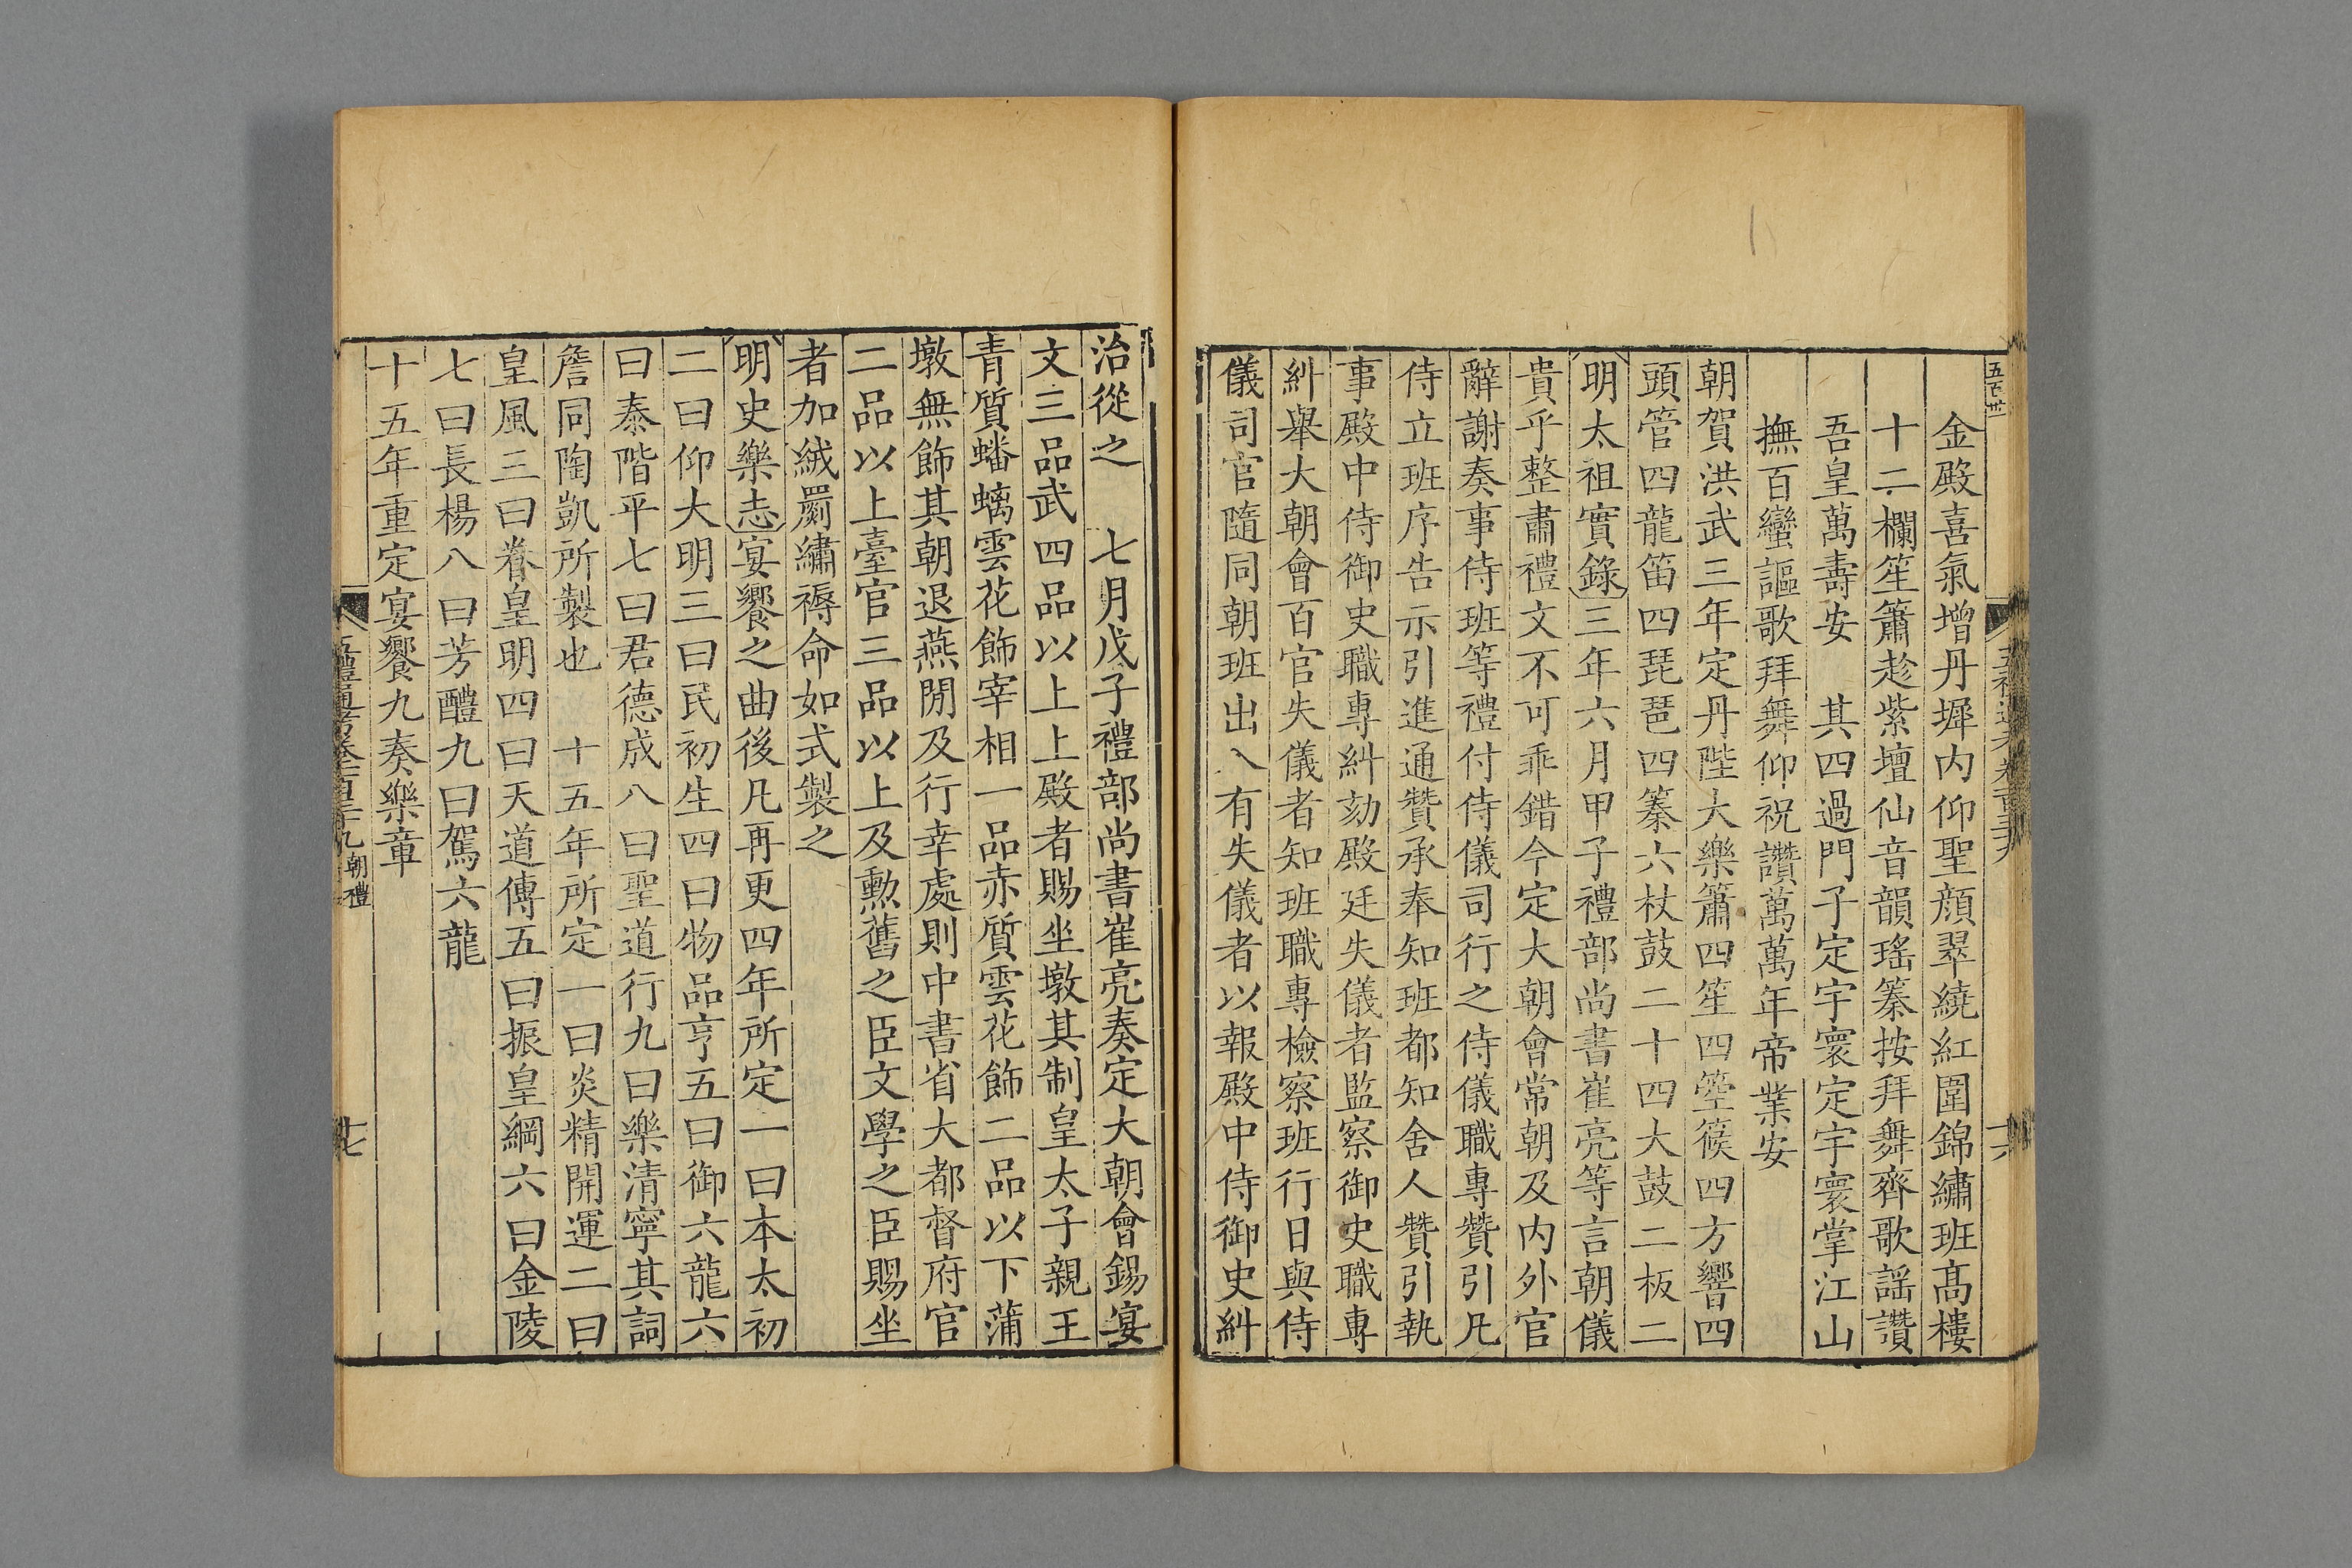 五百卅
金殿喜氣增丹墀内仰聖顔翠繞紅圍錦繡班髙樓
十二欄笙簫趁紫壇仙音韻瑤箏按拜舞齊歌謡讚
吾皇萬壽安　其四過門子定宇寰定宇寰掌江山
撫百蠻謳歌拜舞仰祝讚萬萬年帝業安
朝賀洪武三年定丹陛大樂簫四笙四箜篌四方響四
頭管四龍笛四琵琶四𥱧六杖鼓二十四大鼓二板二
明太祖實錄三年六月甲子禮部尚書崔亮等言朝儀
貴乎整肅禮文不可乖錯今定大朝會常朝及内外官
辭謝奏事侍班等禮付侍儀司行之侍儀職專贊引凡
侍立班序告示引進通贊承奉知班都知舍人贊引執
事殿中侍御史職專糾劾殿廷失儀者監察御史職專
糾舉大朝會百官失儀者知班職專檢察班行日與侍
儀司官隨同朝班出入有失儀者以報殿中侍御史糾
治從之　七月戊子禮部尚書崔亮奏定大朝會錫宴
文三品武四品以上上殿者賜坐墩其制皇太子親王
青質蟠螭雲花飾宰相一品赤質雲花飾二品以下蒲
墩無飾其朝退燕閒及行幸處則中書省大都督府官
二品以上臺官三品以上及勲舊之臣文學之臣賜坐
者加絨罽繡褥命如式製之
明史樂志宴饗之曲後凡再更四年所定一曰本太初
二曰仰大明三曰民初生四曰物品亨五曰御六龍六
曰泰階平七曰君德成八曰聖道行九曰樂清寧其詞
詹同陶凱所製也　十五年所定一曰炎精開運二曰
皇風三曰眷皇明四曰天道傳五曰振皇綱六曰金陵
七曰長楊八曰芳醴九曰駕六龍
十五年重定宴饗九奏樂章
五禮通考卷一百三十九　朝禮
十七